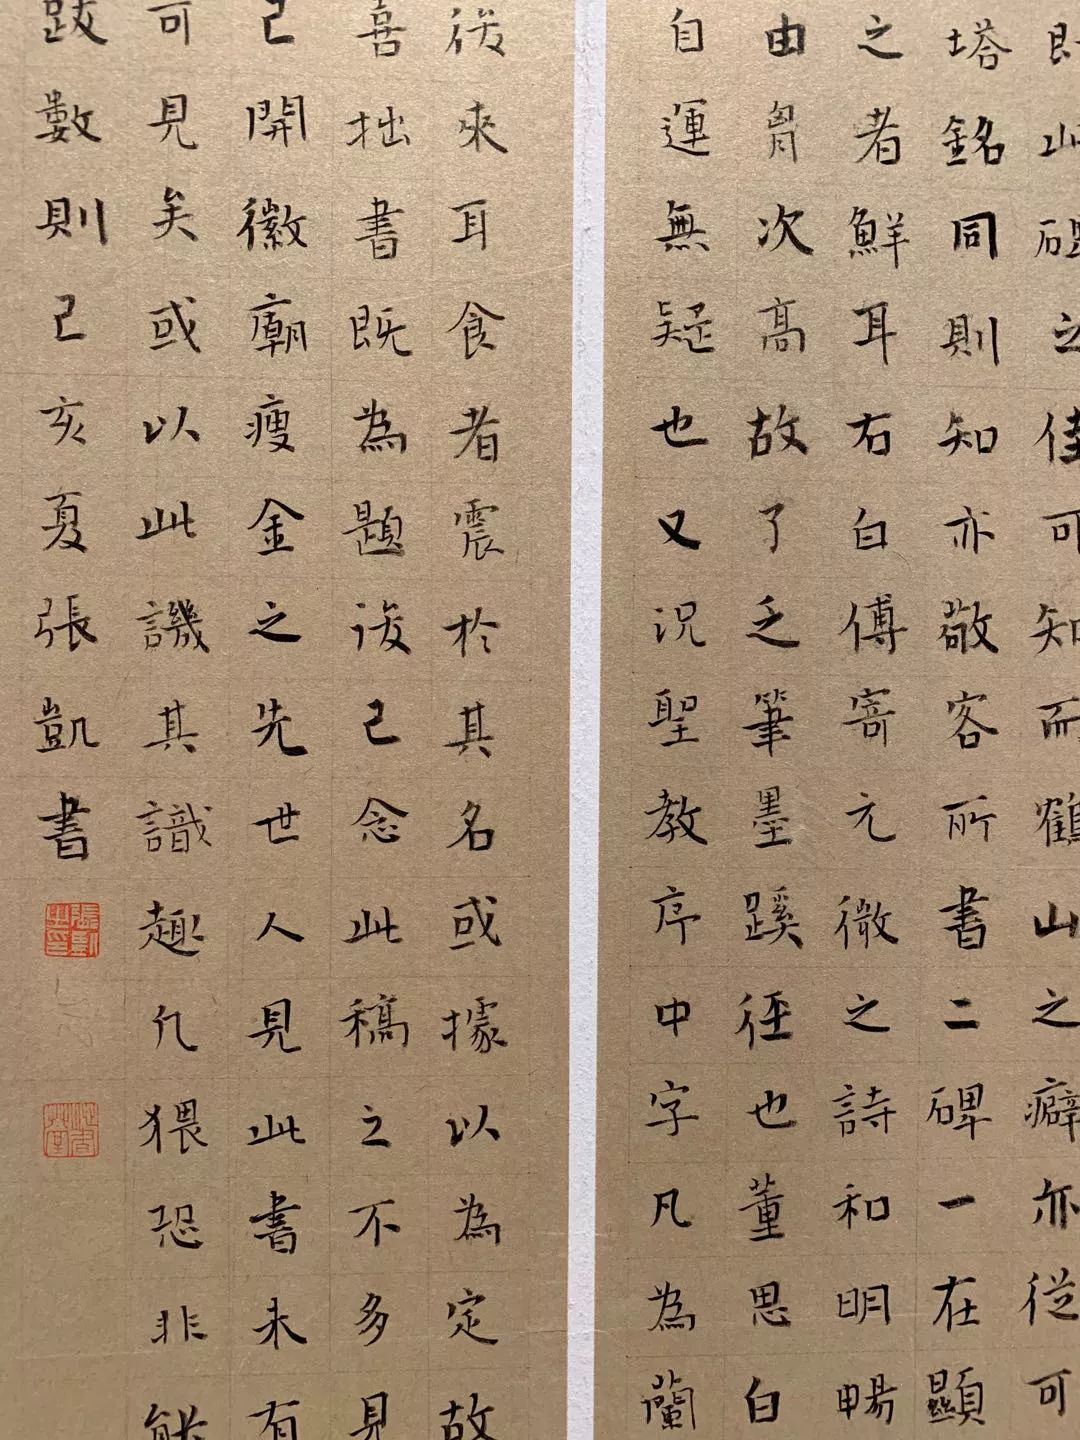 即此碑之佳可知而鶴山之癖亦從可
塔銘同則知亦敬客所書二碑一在顯
之者鮮耳右白傅寄元微之詩和明暢
由胷次高故了乏筆墨蹊徑也董思白
自運無疑也又況聖教序中字凡為蘭
後來耳食者震於其名或據以為定故
喜拙書既為題後已念此稿之不多見
已開徽廟瘦金之先世人見此書未有
可見矣或以此譏其識趣凡猥恐非能
跋數則己亥夏張凱書